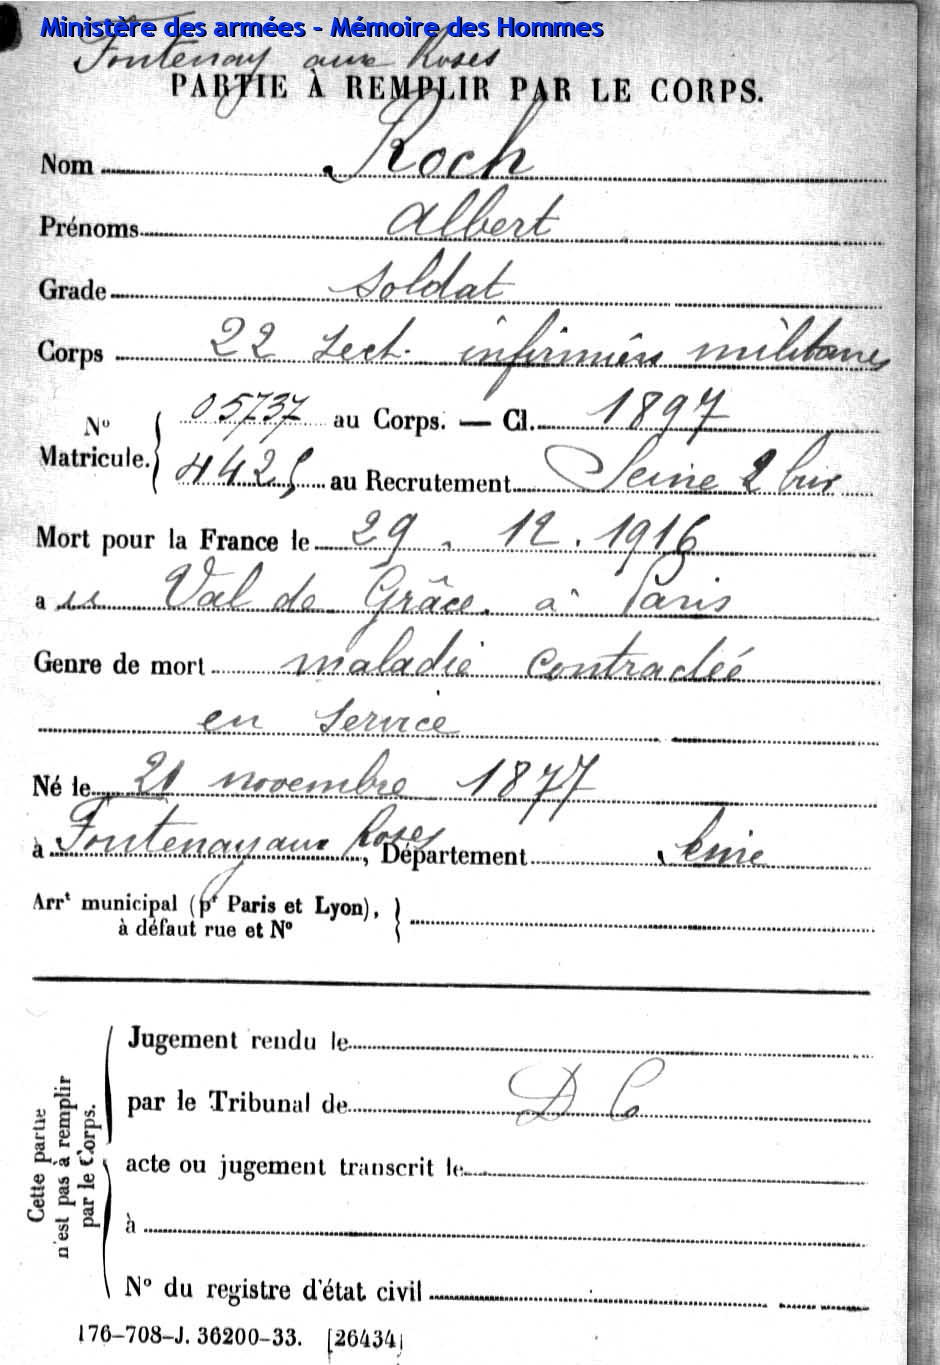 Ministère des armées - Mémoire des Hommes
Fontenay aux Roses
PARTIE À REMPLIR PAR LE CORPS.
Nom Roch
Prénoms Albert
Grade soldat
Corps 22 sect. infirmiers militaires
No Matricule. { 05737 au Corps. — Cl. 1897
4425 au Recrutement Seine 2 bur
Mort pour la France le 29 . 12 . 1916
a u Val de Grâce à Paris
Genre de mort maladie contractée
en service
Né le 21 novembre 1877
à Fontenay aux Roses, Département Seine
Arrt municipal (pr Paris et Lyon), }
à défaut rue et No
Cette partie n'est pas à remplir par le Corps.
Jugement rendu le
par le Tribunal de D C
acte ou jugement transcrit le
à
No du registre d'état civil
176-708-J. 36200-33. [26434]